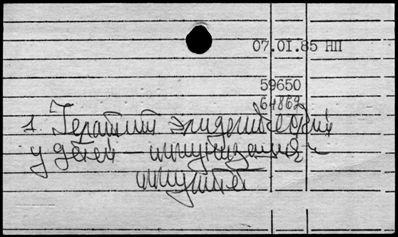 07.01.85 НП
59650
64862
1. Гепатит эпидемический
у детей — иммунизация —
иммунитет